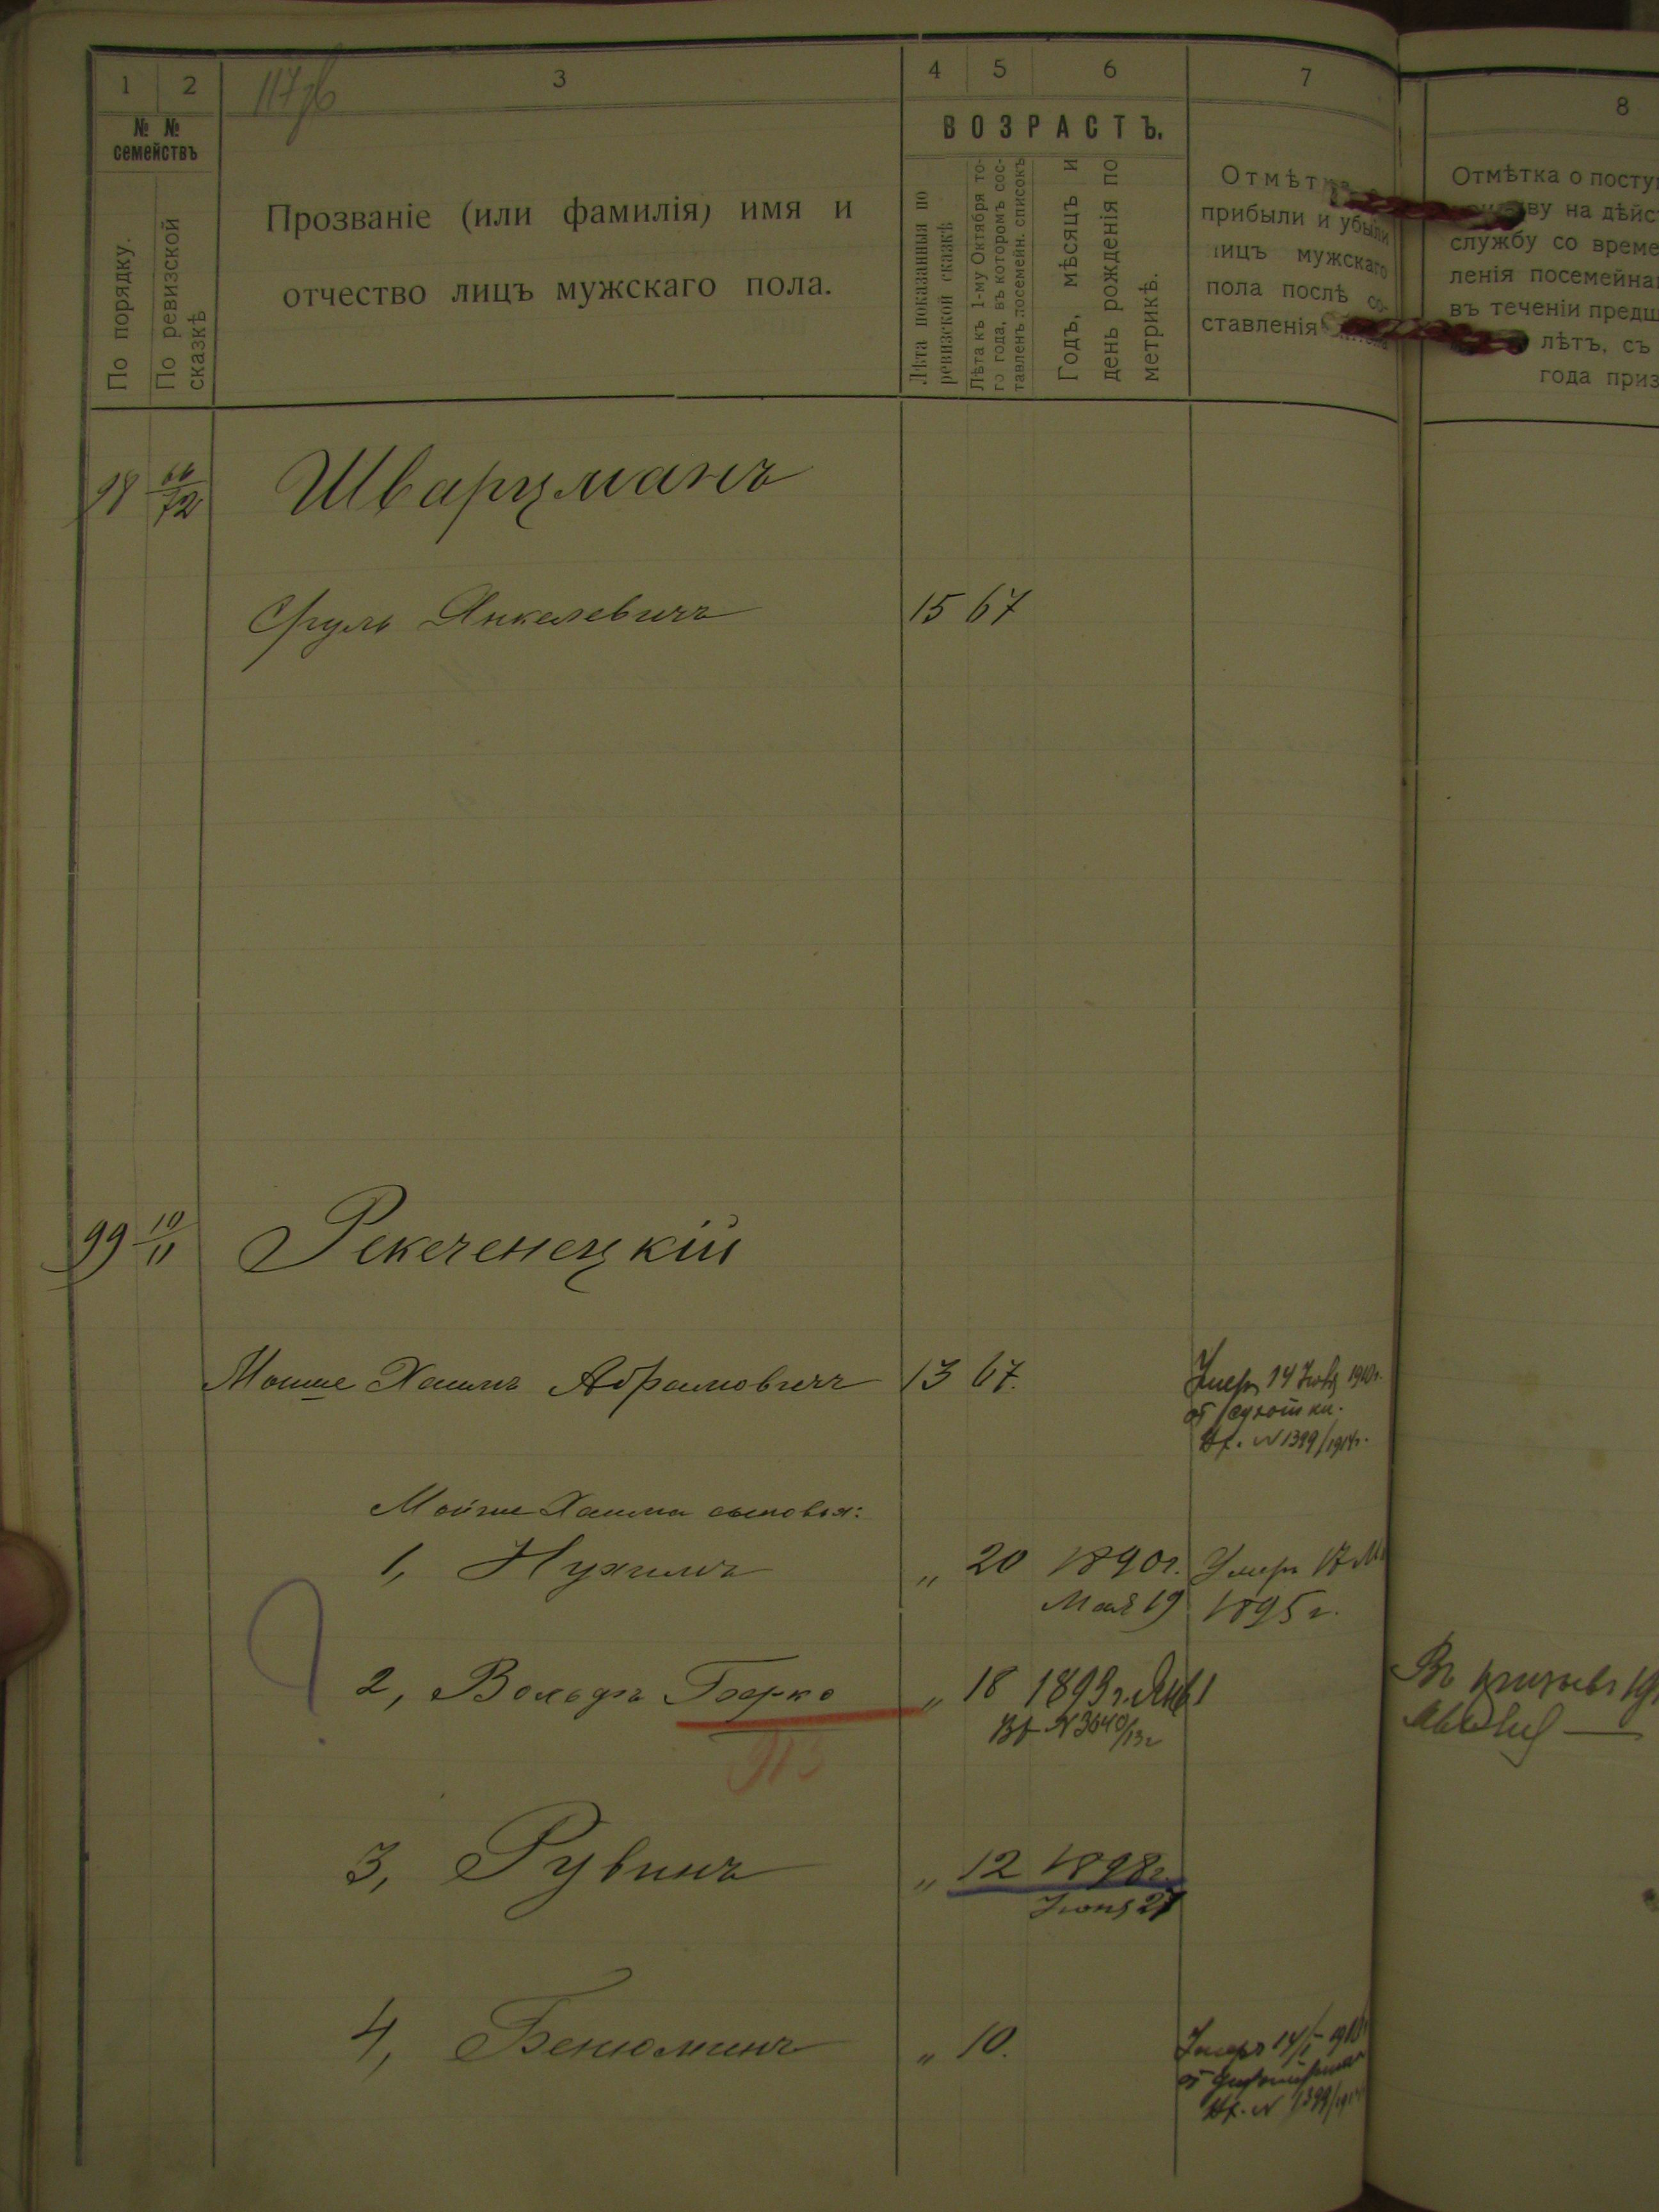 1 2 3 4 5 6 7
8
№ №
семействъ
По порядку.
По ревизской
сказкѣ
Прозваніе (или фамилія) имя и
отчество лицъ мужскаго пола.
ВОЗРАСТЪ.
Лѣта показанныя по
ревизской сказкѣ
Лѣта къ 1-му Октября то-
го года, въ которомъ сос-
тавленъ посемейн. списокъ
Годъ, мѣсяцъ и
день рожденія по
метрикѣ.
прибыли и убыли
лицъ мужскаго
пола послѣ со-
ставленія
Отмѣтка о посту
ву на дѣйс
службу со време
ленія посемейна
въ теченіи предш
лѣтъ, съ
года приз
98 66/72 Шварцманъ
Сруль Янкелевичъ 15 67
99 10/11 Рекеченецкій
Мошше Хаимъ Абрамовичъ 13 67.
Умеръ 14 1910г.
от
Вх. № 1399/1914г.
Мойше Хаима сыновья:
1, Нухимъ „ 20 1890г. Умеръ 17
Мая 19 1895 г.
2, Вольфъ Берко „ 18 1893 г. Янв 1
Вх № 3640/13г
913
3, Рувинъ „ 12 1898г.
Іюня 27
4, Бенюминъ „ 10.
Умеръ 14/I
от
Вх. № 1399/